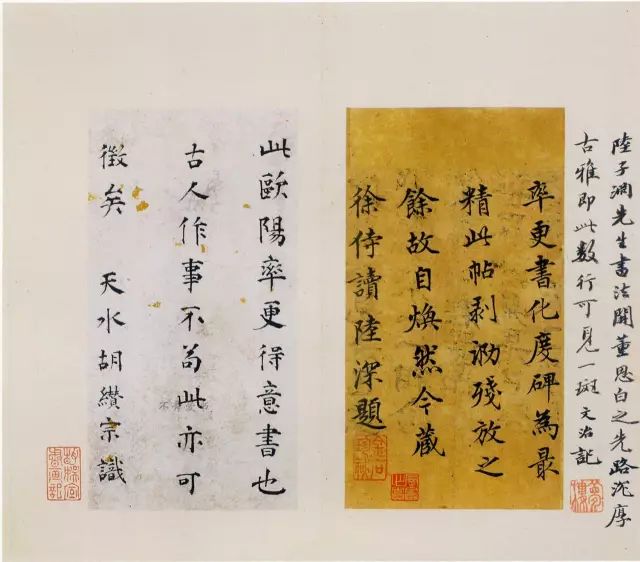 陸子渊先生書法開董思白之先路沉厚
古雅即此数行可見一斑文治記
夢樓
率更書化度碑為最
精此帖剥泐殘放之
餘故自煥然今藏
徐侍讀陸深題
此歐陽率更得意書也
古人作事不苟此亦可
徵矣 天水胡纘宗識